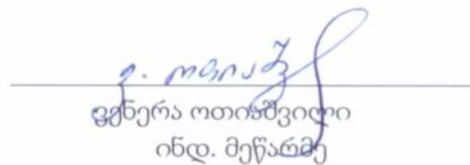 ვ. ოთიაშ
ვენერა ოთიაშვილი
ინდ. მეწარმე